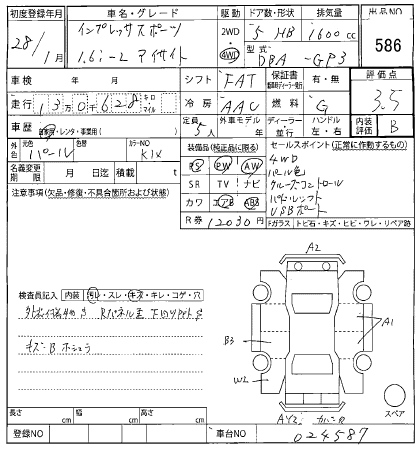 初度登録年月 車名・グレード 駆動 ドア数・形状 排気量 出品NO
28/1月 インプレッサスポーツ 2WD 4WD 5 HB 1600cc 586
1.6i-L アイサイト 型式 DBA-GP3
車検 年 月 シフト FAT 保証書 有・無 評価点
走行 13万0千628 キロ マイル 冷房 AAC 燃料 G 3.5
車歴 自家用・レンタ・事業用( ) 定員 5人 外車モデル 年 ディーラー 並行 ハンドル 左・右 内装評価 B
外色 元色 パール 色替 カラーNO K1X 装備品(純正品に限る) セールスポイント(正常に作動するもの)
PS PW AW 4WD
名義変更期限 月 日迄 積載 t SR TV ナビ パール色
注意事項(欠品・修復・不具合箇所および状態) カワ エアB ABS クルーズコントロール
パドルシフト
R券 12030円 USBポート
Fガラス トビ石・キズ・ヒビ・ワレ・リペア跡
A2
検査員記入 内装 汚レ・スレ・キズ・キレ・コゲ・穴
A1
B3
キズ・B
W2
スペア
長さ cm 幅 cm 高さ cm
登録NO 車台NO 024587